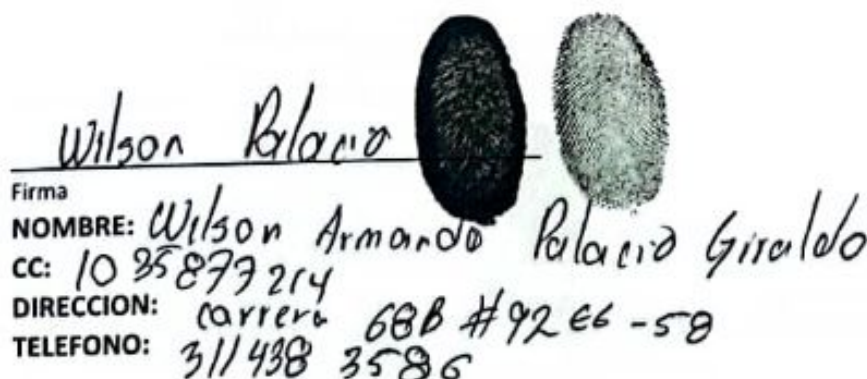 Wilson Palacio
Firma
NOMBRE: Wilson Armando Palacio Giraldo
CC: 1035877214
DIRECCION: Carrera 68B #92 EE -58
TELEFONO: 311 438 3586